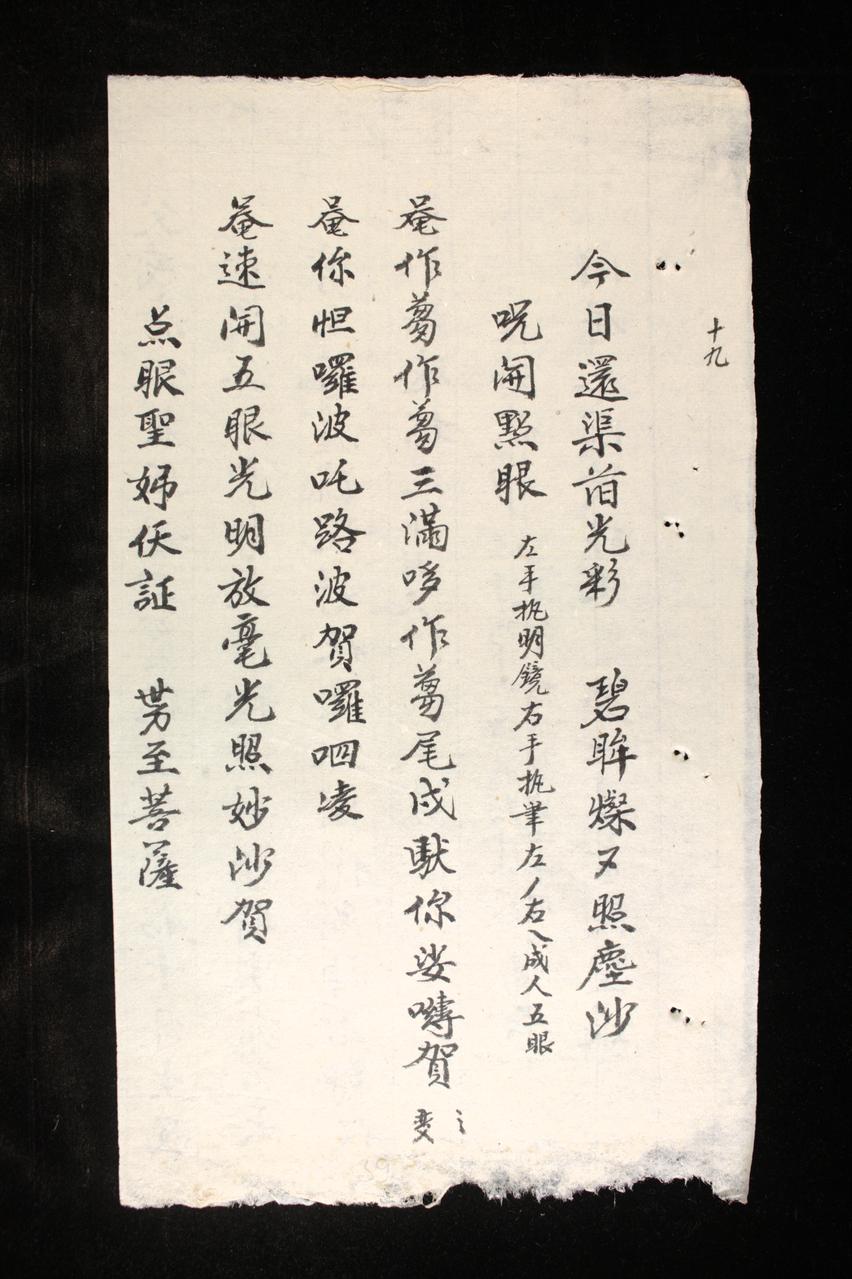 十九
今日還渠旧光彩 碧眸燦又照塵沙
呪開點眼 左手执明鏡右手执筆左丿右乀成人五眼
菴作蒭作蒭三滿哆作蒭尾戍馱你娑嚩賀 三変
菴你怛囉波吒路波賀囉呬凌
菴速開五眼光明放毫光照妙沙賀
点眼聖娣伏証 势至菩薩